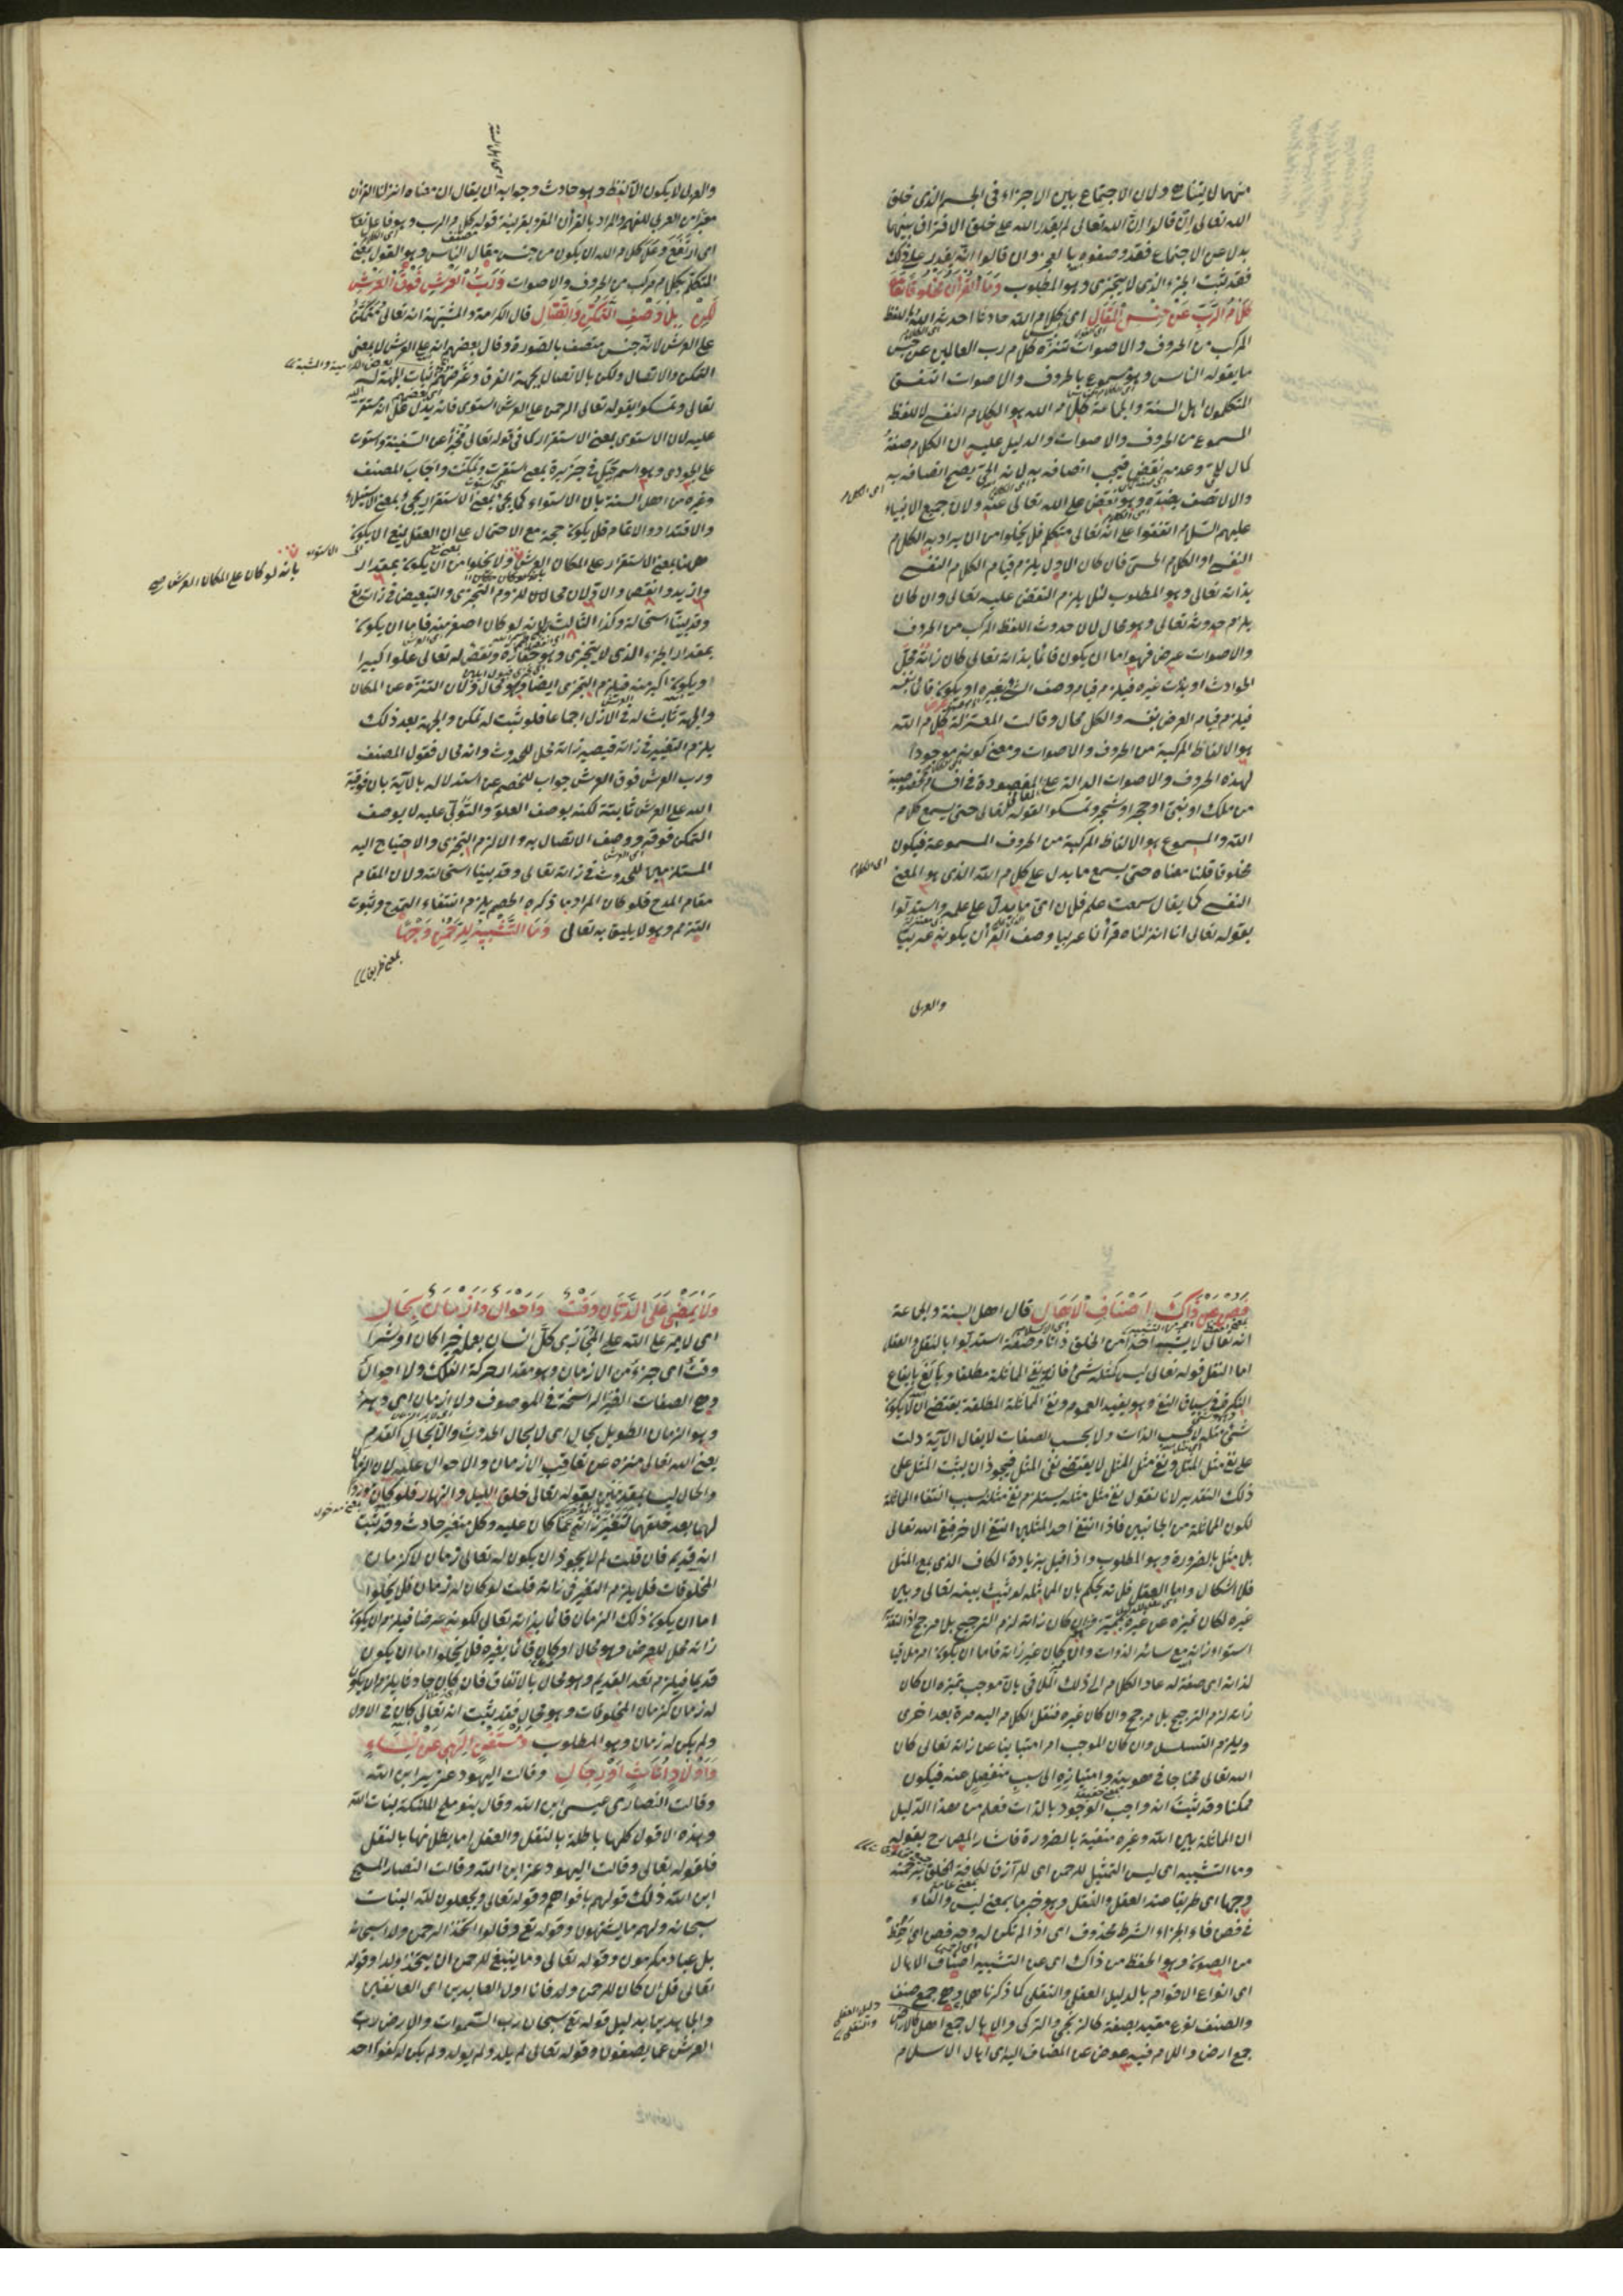 منهما لا يتناهى ولان الاجتماع بين الاجزاء في الجسم الذي خلق
الله تعالى ان قالوا ان الله تعالى لم يقدر الله على خلق الافتراق بينها
بدلا عن الاجتماع فقد وصفوه بالعجز وان قالوا انه يقدر على ذلك
فقد ثبت الجزء الذي لا يتجزى وهو المطلوب وَمَا الْقُرْآنُ مَخْلُوقًا تَعَالَى
كَلَامُ الرَّبِّ عَنْ جِنْسِ الْمَقَالِ اى كلام الله حادثا احدثه الله باللفظ
المركب من الحروف والاصوات تنزه كلام رب العالمين عن جنس
ما يقوله الناس وهو مسموع بالحروف والاصوات اتفق
المتكلمون اهل السنة والجماعة كلام الله هو الكلام النفسي لا للفظ
المسموع من الحروف والاصوات والدليل عليه ان الكلام صفة
كمال لله وعدمه نقص فيجب اتصافه به لانه الحي يصح اتصافه به
والا لاتصف بضده وهو نقص على الله تعالى عنه ولان جميع الانبياء
اى الكلام
عليهم السلام اتفقوا على انه تعالى متكلم فلا يخلوا من ان يراد به الكلام
النفسي او الكلام الحسي فان كان الاول يلزم قيام الكلام النفسي
بذاته تعالى وهو المطلوب لئلا يلزم النقص عليه تعالى وان كان
يلزم حدوثه تعالى وهو محال لان حدوث اللفظ المركب من الحروف
والاصوات عرض فهو اما ان يكون قائما بذاته تعالى كان ذاته محل
الحوادث او بذات غيره فيلزم قيام وصف الشئ بغيره او يكون قائما بنفسه
فيلزم قيام العرض بنفسه والكل محال وقالت المعتزلة كلام الله
هو الالفاظ المركبة من الحروف والاصوات ومعنى كونه موجودا
لهذه الحروف والاصوات الدالة على المقصودة في اقسام مخصوصة
من ملك او نبي او حجر او شجر وتمسكوا لقوله تعالى حتى يسمع كلام
الله والمسموع هو الالفاظ المركبة من الحروف المسموعة فيكون
مخلوقا قلنا معناه حتى يسمع ما يدل على كلام الله الذي هو المعنى
اى الكلام
النفسي كما يقال سمعت علم فلان اى ما يدل على علمه واستدلوا
بقوله تعالى انا انزلناه قرآنا عربيا وصف القرآن يكونه عربيا
والعربى
والعربى لا يكون الا لفظ وهو حادث وجوابه ان يقال ان معناه انزلنا القرآن
معبرا من العربى للفهم والمراد بالقرآن المقرو بقرينة قوله كلام الرب وهو فاعل تعالى
اى ارتفع وعلا كلام الله ان يكون من جنس مقال الناس وهو القول بمعنى
المتكلم بكلام مركب من الحروف والاصوات وَرَبُّ الْعَرْشِ فَوْقَ الْعَرْشِ
لَكِنْ بِلَا وَصْفِ التَّمَكُّنِ وَاتِّصَالِ قال الكرامية والمشبهة انه تعالى متمكن
على العرش لانه جنس متصف بالصورة وقال بعضهم انه على العرش لا بمعنى
التمكن والاتصال ولكن بالاتصال بجهة الفوق وغرضهم اثبات الجهة له
تعالى وتمسكوا بقوله تعالى الرحمن على العرش استوى فانه يدل على انه مستقر
عليه لان الاستوى بمعنى الاستقرار كما في قوله تعالى مخبرا عن السفينة واستوت
على الجودى وهو اسم جبل في جزيرة بمعنى استقرت وتمكنت واجاب المصنف
وغيره من اهل السنة بان الاستواء كما يجئ بمعنى الاستقرار يجئ بمعنى الاستيلاء
والاقتدار والاتمام فلا يكون حجة مع الاحتمال على ان العقل يمنع ان يكون
ههنا بمعنى الاستقرار على المكان العرش ولا يخلوا من ان يكون بمقدار
بانه لو كان على المكان العرش صح
او ازيد او انقص والاولان محالان للزوم التجزى والتبعيض في ذات تعالى
وقد بينا استحالته وكذا الثالث لانه لو كان اصغر منه فاما ان يكون
بمقدار الجزء الذى لا يتجزى وهو حقارة ونقص له تعالى علوا كبيرا
او يكون اكبر منه فيلزم التجزى ايضا وهو محال ولان التنزه عن المكان
والجهة ثابت له في الازل اجماعا فلو ثبت له تمكن والجهة بعد ذلك
يلزم التغيير في ذاته فيصير ذاته محل للحدوث وانه محال فقول المصنف
ورب العرش فوق العرش جواب للخصم عن استدلاله بالآية بان فوقية
الله على العرش ثابتة لكنه يوصف العلو والتولى عليه لا يوصف
التمكن فوقه ووصف الاتصال به والا لزم التجزى والاحتياج اليه
المستلزمين للحدوث في ذاته تعالى وقد بينا استحالته ولان المقام
مقام المدح فلو كان المراد ما ذكره الخصم يلزم انتفاء التمدح وثبوت
التذمم وهو لا يليق به تعالى وَمَا التَّشْبِيهُ لِلرَّحْمَنِ وَجْهًا
فَصُنْ عَنْ ذَاكَ اَصْنَافَ الْاَهَالِ قال اهل السنة والجماعة
انه تعالى لا يشبه احدا من الخلق ذاتا وصفة استدلوا بالنقل والعقل
اما النقل قوله تعالى ليس كمثله شئ فانه نفى المماثلة مطلقا وبالغ بايقاع
النكرة في سياق النفى وهو يفيد العموم ونفى المماثلة المطلقة يقتضى ان لا يكون
شئ مثله لا بحسب الذات ولا بحسب الصفات لا يقال الآية دلت
على نفى مثل المثل ونفى مثل المثل لا يقتضى نفى المثل فيجوز ان يثبت المثل على
ذلك التقدير لانا نقول نفى مثل مثله يستلزم نفى مثله بسبب انتفاء المماثلة
لكون المماثلة من الجانبين فاذا انتفى احد المثلين انتفى الآخر فبقى الله تعالى
بلا مثل بالضرورة وهو المطلوب واذا قيل بزيادة الكاف الذى بمع المثل
فلا اشكال واما العقل فلانه يحكم بان المماثلة لو ثبت بينه تعالى وبين
غيره لكان تميزه عن غيره بمميز فان كان ذاته لزم الترجيح بلا مرجح اذ التقدير
استواء ذاته مع سائر الذوات وان كان غير ذاته فاما ان يكون امر ملاقيا
لذاته اى صفة له عاد الكلام الى ذلك الملاقى بان موجب تميزه ان كان
ذاته لزم الترجيح بلا مرجح وان كان غيره فننقل الكلام اليه مرة بعد اخرى
ويلزم التسلسل وان كان الموجب امرا متباينا عن ذاته تعالى كان
الله تعالى محتاجا في هويته وامتيازه الى سبب منفصل عنه فيكون
ممكنا وقد ثبت انه واجب الوجود بالذات فعلم من هذا الدليل
ان المماثلة بين الله وغيره منفية بالضرورة فاشار المصارح بقوله
وما التشبيه اى ليس التمثيل للرحمن اى للرازق لكافة الخلق برحمته
وجها اى طريقا عند العقل والنقل وهو خبر ما بمعنى ليس والفاء
في فصن فاء الجزاء الشرط محذوف اى اذا لم تكن له وجه فصن اى احفظ
من الصون وهو الحفظ من ذاك اى عن التشبيه اصناف الاهال
اى انواع الاقوام بالدليل العقلى والنقلى كما ذكرناهما وهى جمع صنف
دليل العقلى والنقلى
والصنف نوع مقيد بصفة كالزنجى والتركى والاهال جمع اهل كالاراض
جمع ارض واللام فيه عوض عن المضاف اليه اى اهال الاسلام
وَلَا يَمْضِي عَلَى الدَّيَّانِ وَقْتٌ وَاَحْوَالٌ وَاَزْمَانٌ بِحَالِ
اى لا يمر على الله على المجازى كل انسان بعمله خيرا كان او شرا
وقت اى جزء من الازمان وهو مقدار حركة الفلك ولا احوال
وهى الصفات الغير الراسخة في الموصوف ولا ازمان اى دهر
وهو الزمان الطويل بحال اى لا بحال الحدوث والا بحال القدم
يعنى الله تعالى منزه عن تعاقب الازمان والاحوال عليه لان الزمان
والحال ليسا بقديمين لقوله تعالى خلق الليل والنهار فلو كان
لهما بعد خلقهما لتغير ذاته عما كان عليه وكل متغير حادث وقد ثبت
انه قديم فان قلت لم لا يجوز ان يكون له تعالى زمان لا كزمان
المخلوقات فلا يلزم التغير في ذاته قلت لو كان له زمان فلا يخلوا
اما ان يكون ذلك الزمان قائما بذاته تعالى لكونه عرضا فيلزم ان يكون
ذاته محل للعرض وهو محال او كان قائما بغيره فلا يخلوا اما ان يكون
قديما فيلزم تعدد القديم وهو محال بالاتفاق فان كان حادثا يلزم ان يكون
له زمان كزمان المخلوقات وهو محال فقد يثبت انه تعالى كان في الاول
ولم يكن له زمان وهو المطلوب وَمُسْتَغْنٍ اِلَهِي عَنْ نِسَاءٍ
وَاَوْلَادٍ اِنَاثٍ اَوْ رِجَالِ وقالت اليهود عزير ابن الله
وقالت النصارى عيسى ابن الله وقال بنو ملح الملئكة بنات الله
وهذه الاقول كلها باطلة بالنقل والعقل اما بطلانها بالنقل
فلقوله تعالى وقالت اليهود عزير ابن الله وقالت النصارى المسيح
ابن الله ذلك قولهم بافواههم وقوله تعالى ويجعلون لله البنات
سبحانه ولهم ما يشتهون وقوله تع وقالوا اتخذ الرحمن ولدا سبحانه
بل عباد مكرمون وقوله تعالى وما ينبغى للرحمن ان يتخذ ولدا وقوله
تعالى قل ان كان للرحمن ولد فانا اول العابدين اى العانفين
والجاهدين بدليل قوله تع سبحان رب السموات والارض رب
العرش عما يصفون وقوله تعالى لم يلد ولم يولد ولم يكن له كفوا احد